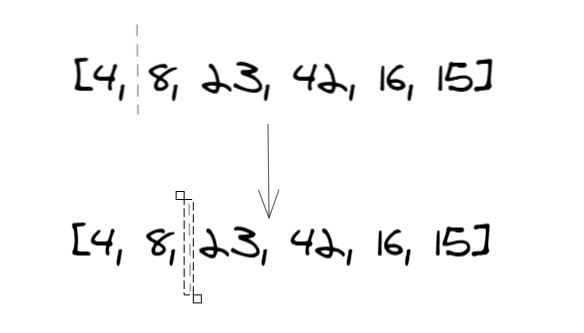 [4, 8, 23, 42, 16, 15]
[4, 8, 23, 42, 16, 15]